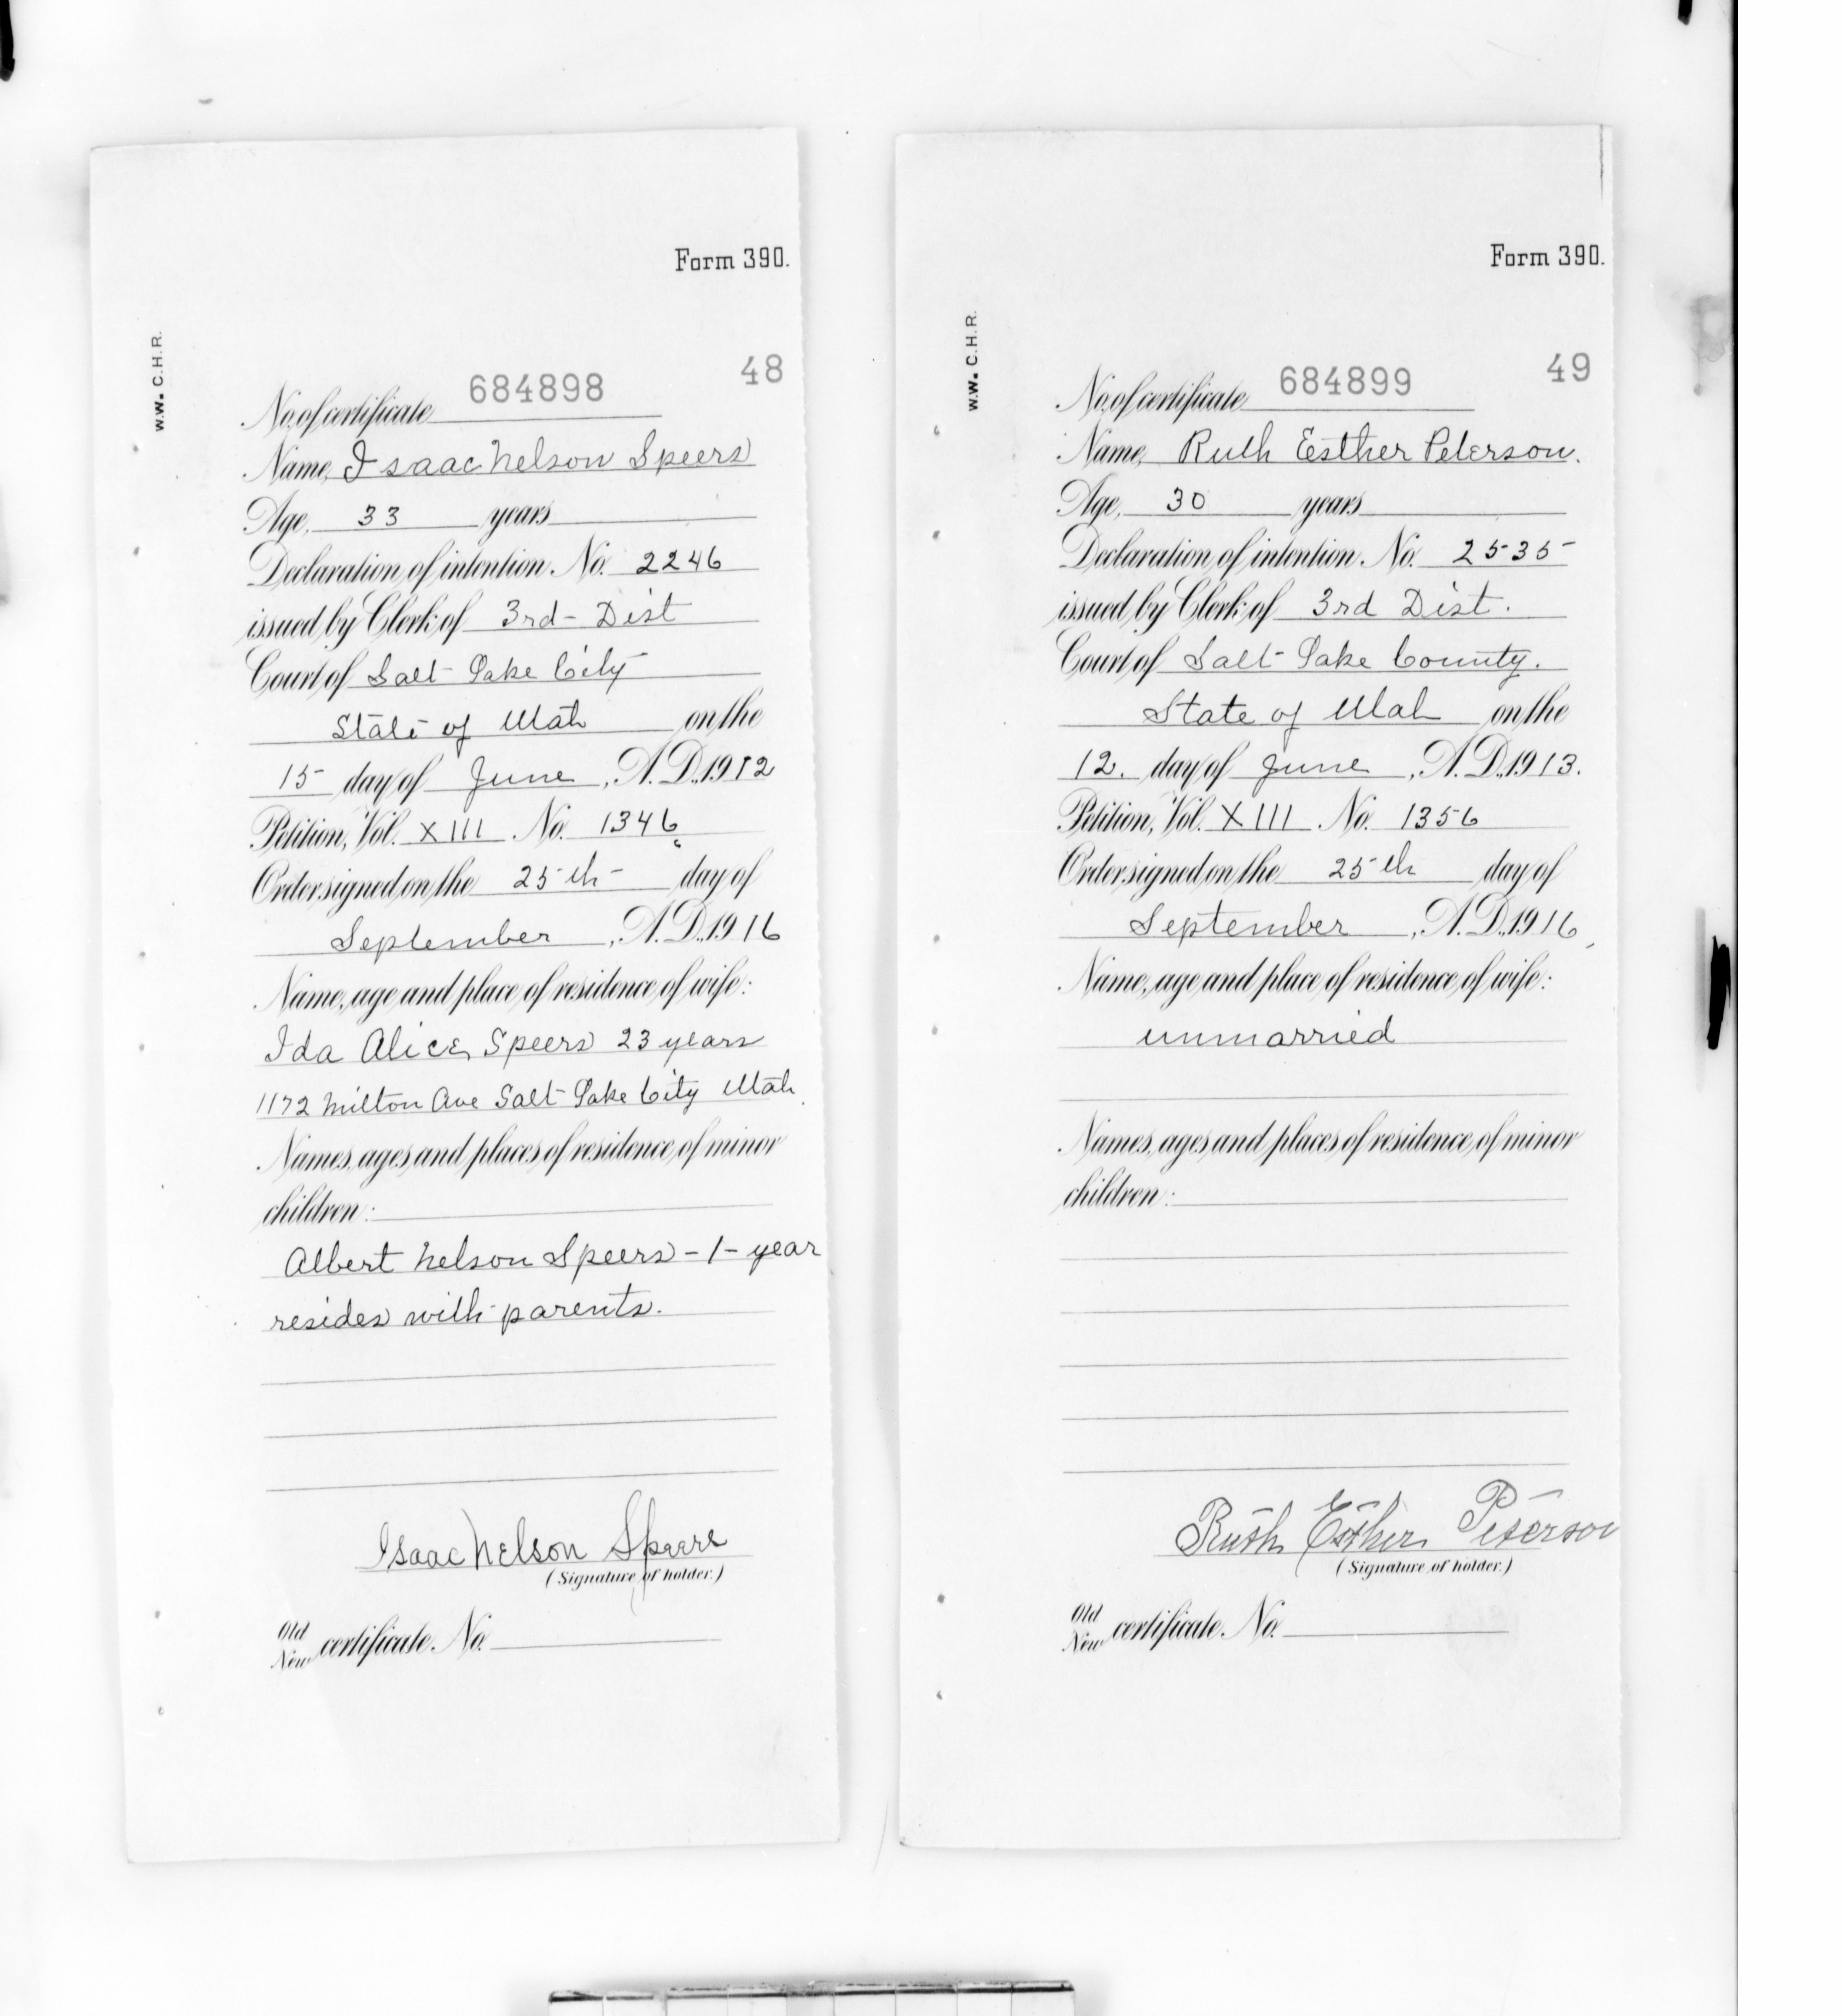 Form 390.
W.W. C.H.R.
48
No. of certificate 684898
Name, Isaac Nelson Speers
Age, 33 years
Declaration of intention. No. 2246
issued by Clerk of 3rd - Dist
Court of Salt Lake City
State of Utah on the
15 day of June, A.D. 1912
Petition, Vol. XIII No. 1346
Order signed on the 25th day of
September, A.D. 1916
Name, age and place of residence of wife:
Ida Alice Speers 23 years
1172 Milton Ave Salt Lake City Utah.
Names, ages and places of residence of minor
children:
Albert Nelson Speers - 1 - year
resides with parents.
Isaac Nelson Speers
(Signature of holder.)
Old
New certificate. No.
Form 390.
W.W. C.H.R.
49
No. of certificate 684899
Name, Ruth Esther Peterson.
Age, 30 years
Declaration of intention. No. 2535
issued by Clerk of 3rd Dist.
Court of Salt Lake County.
State of Utah on the
12. day of June, A.D. 1913.
Petition, Vol. XIII No. 1356
Order signed on the 25th day of
September, A.D. 1916
Name, age and place of residence of wife:
unmarried
Names, ages and places of residence of minor
children:
Ruth Esther Peterson
(Signature of holder.)
Old
New certificate. No.